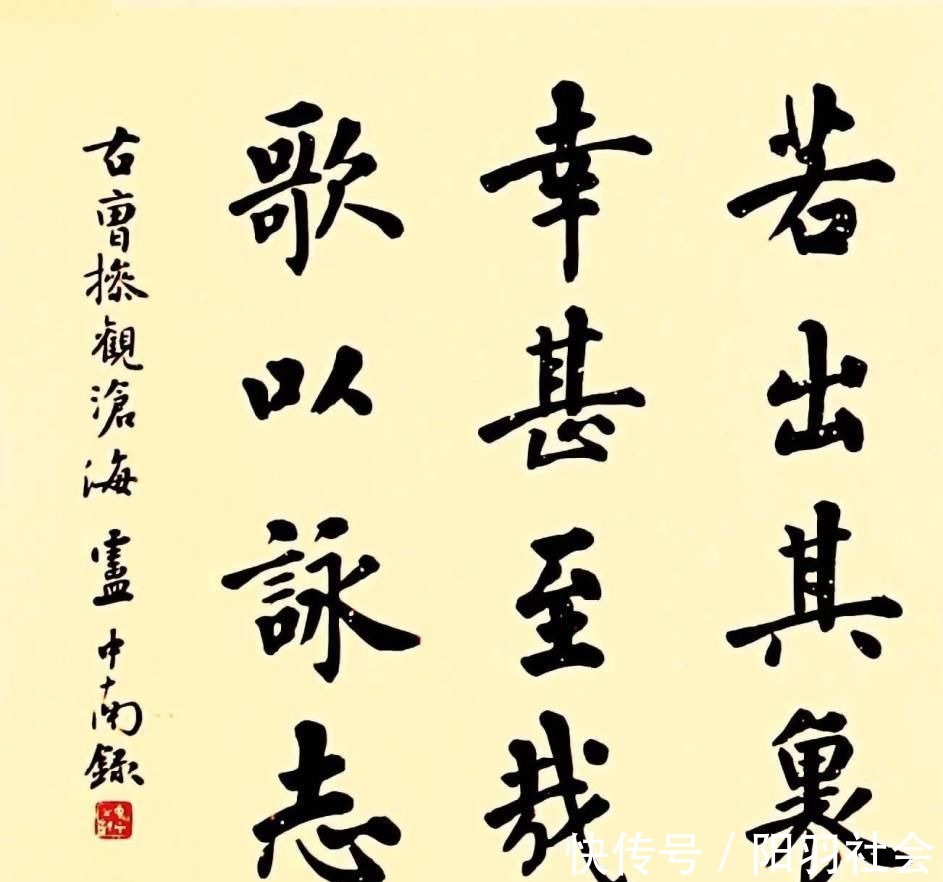 若出其裏
幸甚至哉
歌以詠志
右曹操觀滄海 盧中南錄
快传号/阳羽社会